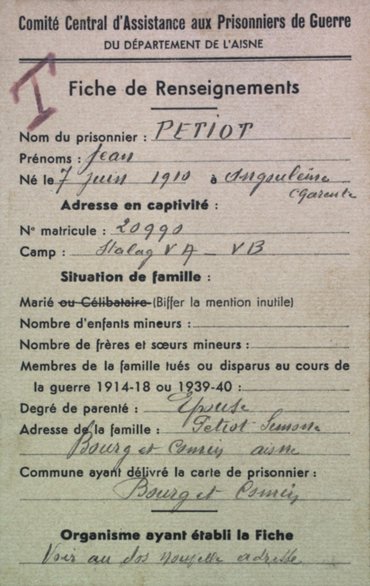 Comité Central d'Assistance aux Prisonniers de Guerre
DU DÉPARTEMENT DE L'AISNE
I
Fiche de Renseignements
Nom du prisonnier : PETIOT
Prénoms : Jean
Né le 7 Juin 1910 à Angoulême
Charente
Adresse en captivité :
N° matricule : 20990
Camp : Stalag VA - VB
Situation de famille :
Marié ou Célibataire (Biffer la mention inutile)
Nombre d'enfants mineurs :
Nombre de frères et sœurs mineurs :
Membres de la famille tués ou disparus au cours de
la guerre 1914-18 ou 1939-40 :
Degré de parenté : Epouse
Adresse de la famille : Petiot Simone
Bourg et Comin aisne
Commune ayant délivré la carte de prisonnier :
Bourg et Comin
Organisme ayant établi la Fiche
Voir au dos nouvelle adresse